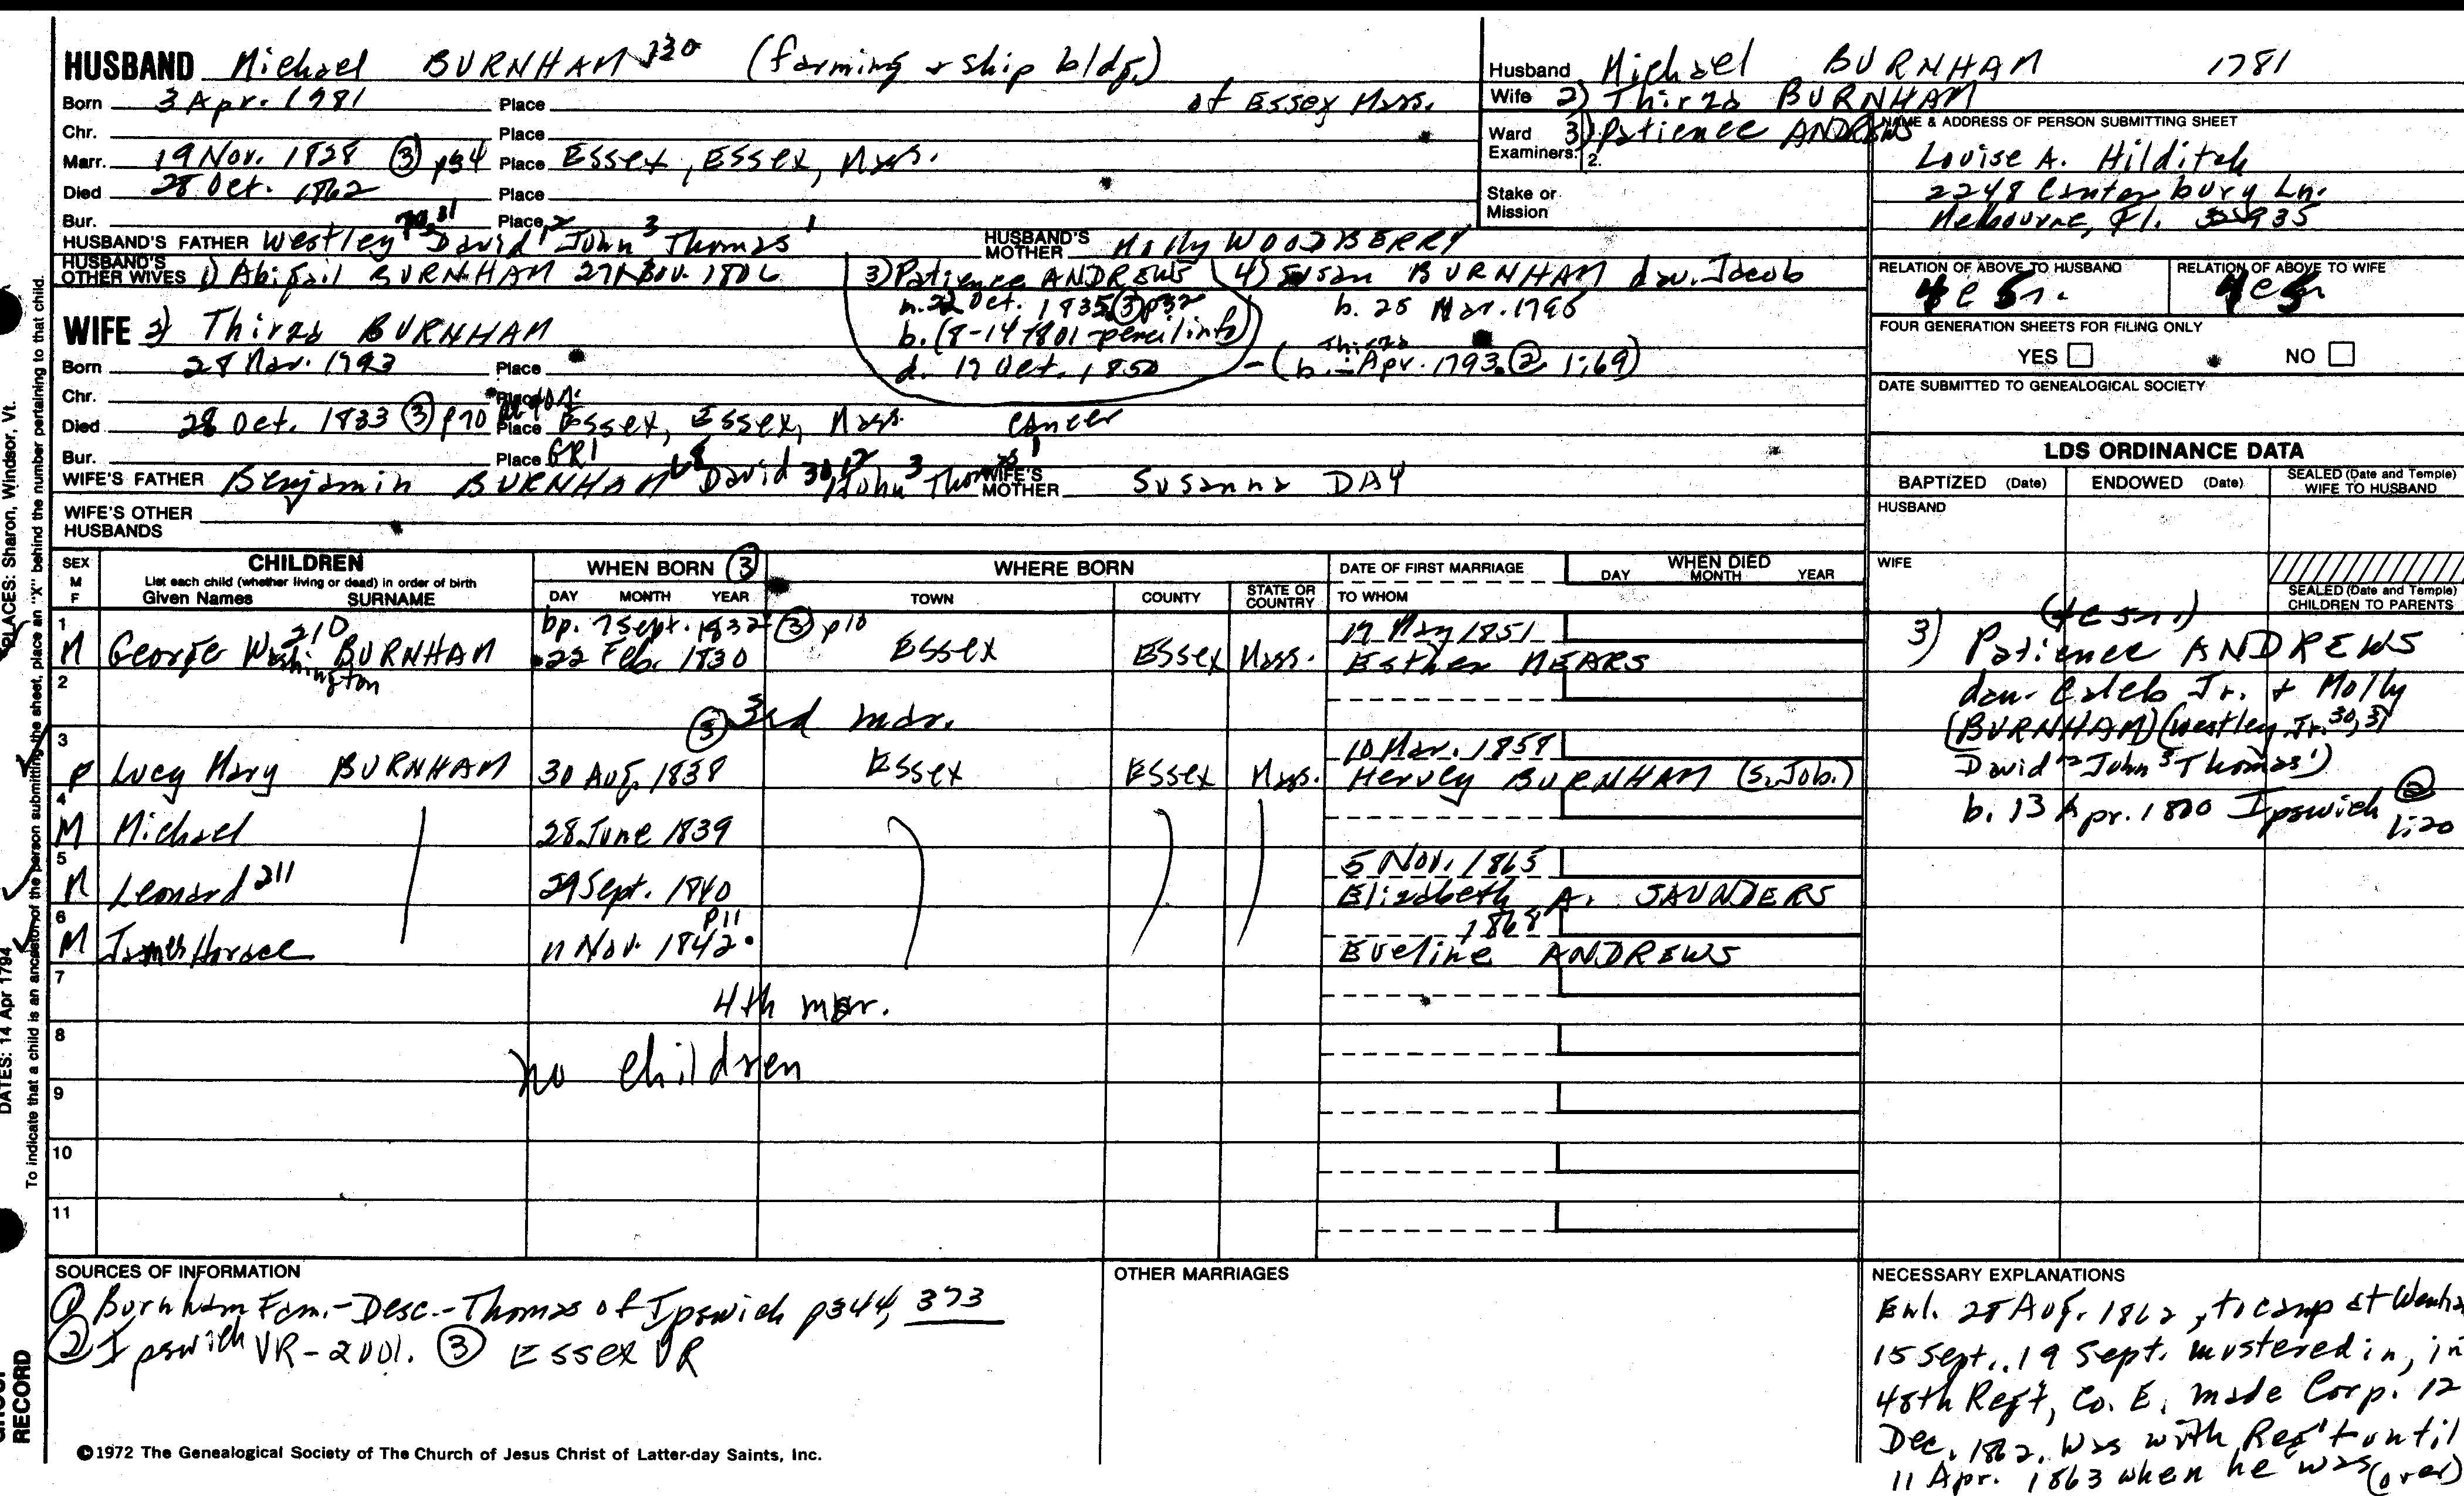 HUSBAND Michael BURNHAM 120 (farming & ship bldg.)
Born 3 Apr. 1781 Place of Essex Mass.
Chr. Place
Marr. 19 Nov. 1828 ③ p34 Place Essex, Essex, Mass.
Died 28 Oct. 1862 Place
Bur. Place
HUSBAND'S FATHER Westley David 2 John 3 Thomas 1 HUSBAND'S MOTHER Molly WOODBERRY
HUSBAND'S OTHER WIVES 1) Abigail BURNHAM 27 Nov. 1806 3) Patience ANDREWS 4) Susan BURNHAM dau. Jacob
m. 22 Oct. 1835 ③ p32 b. 25 Mar. 1796
WIFE 2) Thirza BURNHAM b. (8-14-1801 - pencil info)
Born 28 Mar. 1793 Place d. 17 Oct. 1850 - (b. Thirza - Apr. 1793 ② 1:69)
Chr. Place
Died 28 Oct. 1833 ③ p70 Place Essex, Essex, Mass. cancer
Bur. Place GR1
WIFE'S FATHER Benjamin BURNHAM David John 3 Thomas 1 WIFE'S MOTHER Susanna DAY
WIFE'S OTHER HUSBANDS
Husband Michael BURNHAM 1781
Wife 2) Thirza BURNHAM
Ward 3) Patience ANDREWS
Examiners: 2.
Stake or Mission
NAME & ADDRESS OF PERSON SUBMITTING SHEET
Louise A. Hilditch
2248 Canterbury Ln.
Melbourne, Fl. 32935
RELATION OF ABOVE TO HUSBAND RELATION OF ABOVE TO WIFE
FOUR GENERATION SHEETS FOR FILING ONLY
YES NO
DATE SUBMITTED TO GENEALOGICAL SOCIETY
LDS ORDINANCE DATA
BAPTIZED (Date) ENDOWED (Date) SEALED (Date and Temple) WIFE TO HUSBAND
HUSBAND
WIFE
SEALED (Date and Temple) CHILDREN TO PARENTS
SEX M F CHILDREN List each child (whether living or dead) in order of birth Given Names SURNAME WHEN BORN ③ DAY MONTH YEAR WHERE BORN TOWN COUNTY STATE OR COUNTRY DATE OF FIRST MARRIAGE TO WHOM WHEN DIED DAY MONTH YEAR
1 210 bp. 7 Sept. 1832 ③ p10 17 May 1851
M George Washington BURNHAM 22 Feb. 1830 Essex Essex Mass. Esther MEARS
2
③ 3rd mar.
3 10 Mar. 1858
F Lucy Mary BURNHAM 30 Aug. 1838 Essex Essex Mass. Hervey BURNHAM (s. Job.)
4
M Michael 28 June 1839
5 5 Nov. 1865
M Leonard 211 29 Sept. 1840 Elizabeth A. SAUNDERS
6 p11 1868
M James Horace 11 Nov. 1842 Eveline ANDREWS
7
4th mar.
8
no children
9
10
11
3) Patience ANDREWS
dau. Caleb Jr. & Molly
(BURNHAM) (Westley Jr. 30, 31
David 12 John 3 Thomas 1)
b. 13 Apr. 1800 Ipswich ②
1:20
SOURCES OF INFORMATION
① Burnham Fam.-Desc.-Thomas of Ipswich p344, 373
② Ipswich VR-2vol. ③ Essex VR
OTHER MARRIAGES
NECESSARY EXPLANATIONS
Enl. 28 Aug. 1862, to camp at
15 Sept., 19 Sept. mustered in, in
48th Reg't, Co. E, made Corp. 12
Dec. 1862. Was with Reg't until
11 Apr. 1863 when he was (over)
©1972 The Genealogical Society of The Church of Jesus Christ of Latter-day Saints, Inc.
PLACES: Sharon, Windsor, Vt.
DATES: 14 Apr 1794
To indicate that a child is an ancestor of the person submitting the sheet, place an "X" behind the number pertaining to that child.
RECORD